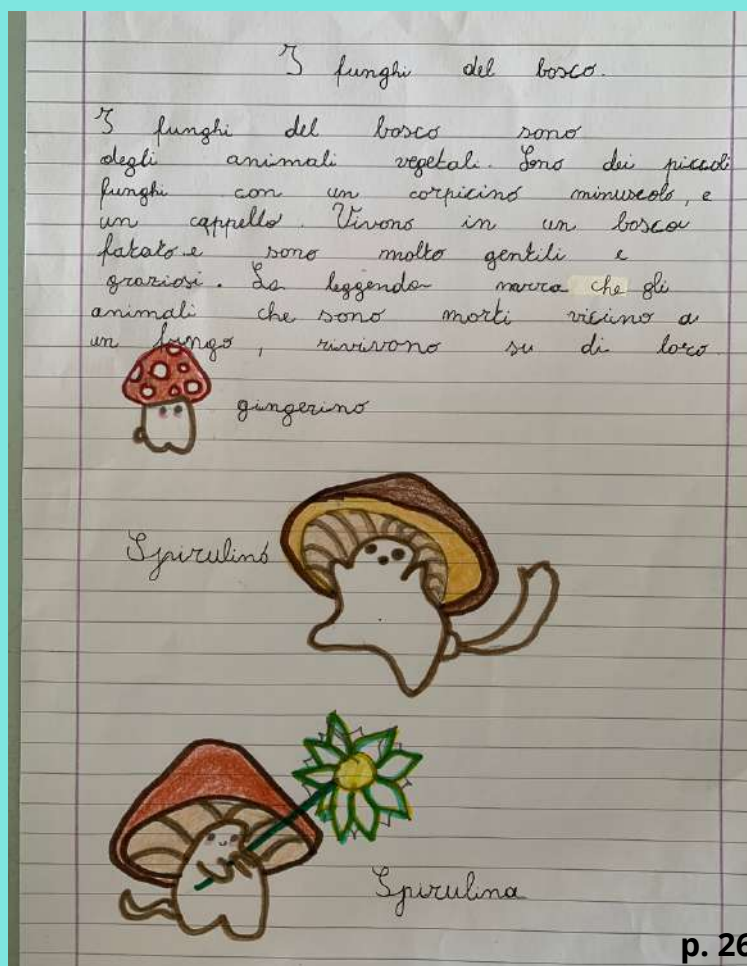 I funghi del bosco.
I funghi del bosco sono
degli animali vegetali. Sono dei piccoli
funghi con un corpicino minuscolo, e
un cappello. Vivono in un bosco
fatato e sono molto gentili e
graziosi. La leggenda narra che gli
animali che sono morti vicino a
un fungo, rivivono su di loro.
gingerino
Spirulino
Spirulina
p. 26